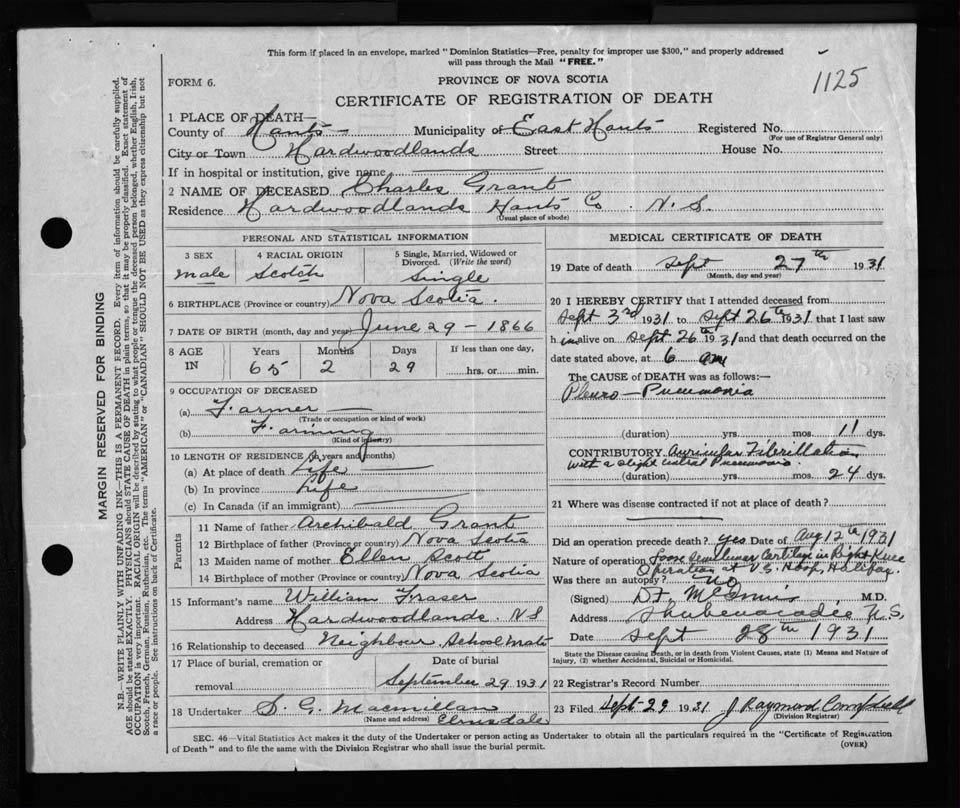 This form if placed in an envelope, marked "Dominion Statistics—Free, penalty for improper use $300," and properly addressed
will pass through the Mail "FREE."
1125
FORM 6.
PROVINCE OF NOVA SCOTIA
CERTIFICATE OF REGISTRATION OF DEATH
1 PLACE OF DEATH—
County of Hants Municipality of East Hants Registered No.
(For use of Registrar General only)
City or Town Hardwoodlands Street House No.
If in hospital or institution, give name
2 NAME OF DECEASED Charles Grant
Residence Hardwoodlands Hants Co. N. S.
(Usual place of abode)
PERSONAL AND STATISTICAL INFORMATION
3 SEX male
4 RACIAL ORIGIN Scotch
5 Single, Married, Widowed or Divorced. (Write the word) Single
6 BIRTHPLACE (Province or country) Nova Scotia
7 DATE OF BIRTH (month, day and year) June 29 - 1866
8 AGE IN Years Months Days If less than one day,
65 2 29 hrs. or min.
9 OCCUPATION OF DECEASED
(a) Farmer
(Trade or occupation or kind of work)
(b) Farming
(Kind of industry)
10 LENGTH OF RESIDENCE (in years and months)
(a) At place of death Life
(b) In province Life
(c) In Canada (if an immigrant)
Parents
11 Name of father Archibald Grant
12 Birthplace of father (Province or country) Nova Scotia
13 Maiden name of mother Ellen Scott
14 Birthplace of mother (Province or country) Nova Scotia
15 Informant's name William Fraser
Address Hardwoodlands. N S
16 Relationship to deceased Neighbour, School Mate
17 Place of burial, cremation or removal
Date of burial September 29 1931
18 Undertaker S. G. Macmillan
(Name and address) Elmsdale
MEDICAL CERTIFICATE OF DEATH
19 Date of death Sept 27th 1931
(Month, day and year)
20 I HEREBY CERTIFY that I attended deceased from
Sept 3rd 1931 to Sept 26th 1931 that I last saw
h im alive on Sept 26th 1931 and that death occurred on the
date stated above, at 6 am
The CAUSE OF DEATH was as follows:—
Pleuro-Pneumonia
(duration) yrs. mos. 11 dys.
CONTRIBUTORY Auricular Fibrillation
with a slight central Pneumonia.
(duration) yrs. mos. 24 dys.
21 Where was disease contracted if not at place of death?
Did an operation precede death? yes Date of Aug 12th 1931
Nature of operation Loose Semilunar Cartilage in Right Knee
Operation at V.G. Hosp, Halifax.
Was there an autopsy? NO
(Signed) D.F. McInnis M.D.
Address Shubenacadie N.S.
Date Sept 28th 1931
State the Disease causing Death, or in death from Violent Causes, state (1) Means and Nature of
Injury, (2) whether Accidental, Suicidal or Homicidal.
22 Registrar's Record Number
23 Filed Sept 29 1931 J Raymond Campbell
(Division Registrar)
SEC. 46—Vital Statistics Act makes it the duty of the Undertaker or person acting as Undertaker to obtain all the particulars required in the "Certificate of Registration
of Death" and to file the same with the Division Registrar who shall issue the burial permit.
(OVER)
MARGIN RESERVED FOR BINDING
N.B.—WRITE PLAINLY WITH UNFADING INK—THIS IS A PERMANENT RECORD. Every item of information should be carefully supplied.
AGE should be stated EXACTLY. PHYSICIANS should STATE CAUSE OF DEATH in plain terms, so that it may be properly classified. Exact statement of
OCCUPATION is very important. RACIAL ORIGIN will be described by stating to what people or tongue the deceased person belonged, whether English, Irish,
Scotch, French, German, Russian, Ruthenian, etc. The terms "AMERICAN" or "CANADIAN" SHOULD NOT BE USED as they express citizenship but not
a race or people. See instructions on back of Certificate.